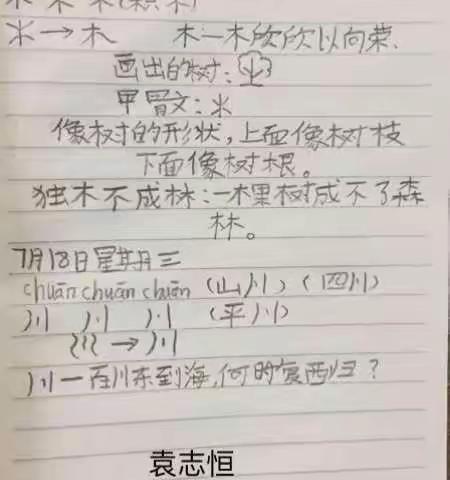 木 木 木 (积木)
→ 木 木一木欣欣以向荣.
画出的树:
甲骨文:
像树的形状,上面像树枝
下面像树根。
独木不成林:一棵树成不了森
林。
7月18日星期三
chuān chuān chuān (山川) (四川)
川 川 川 (平川)
→ 川
川一百川东到海,何时复西归?
袁志恒